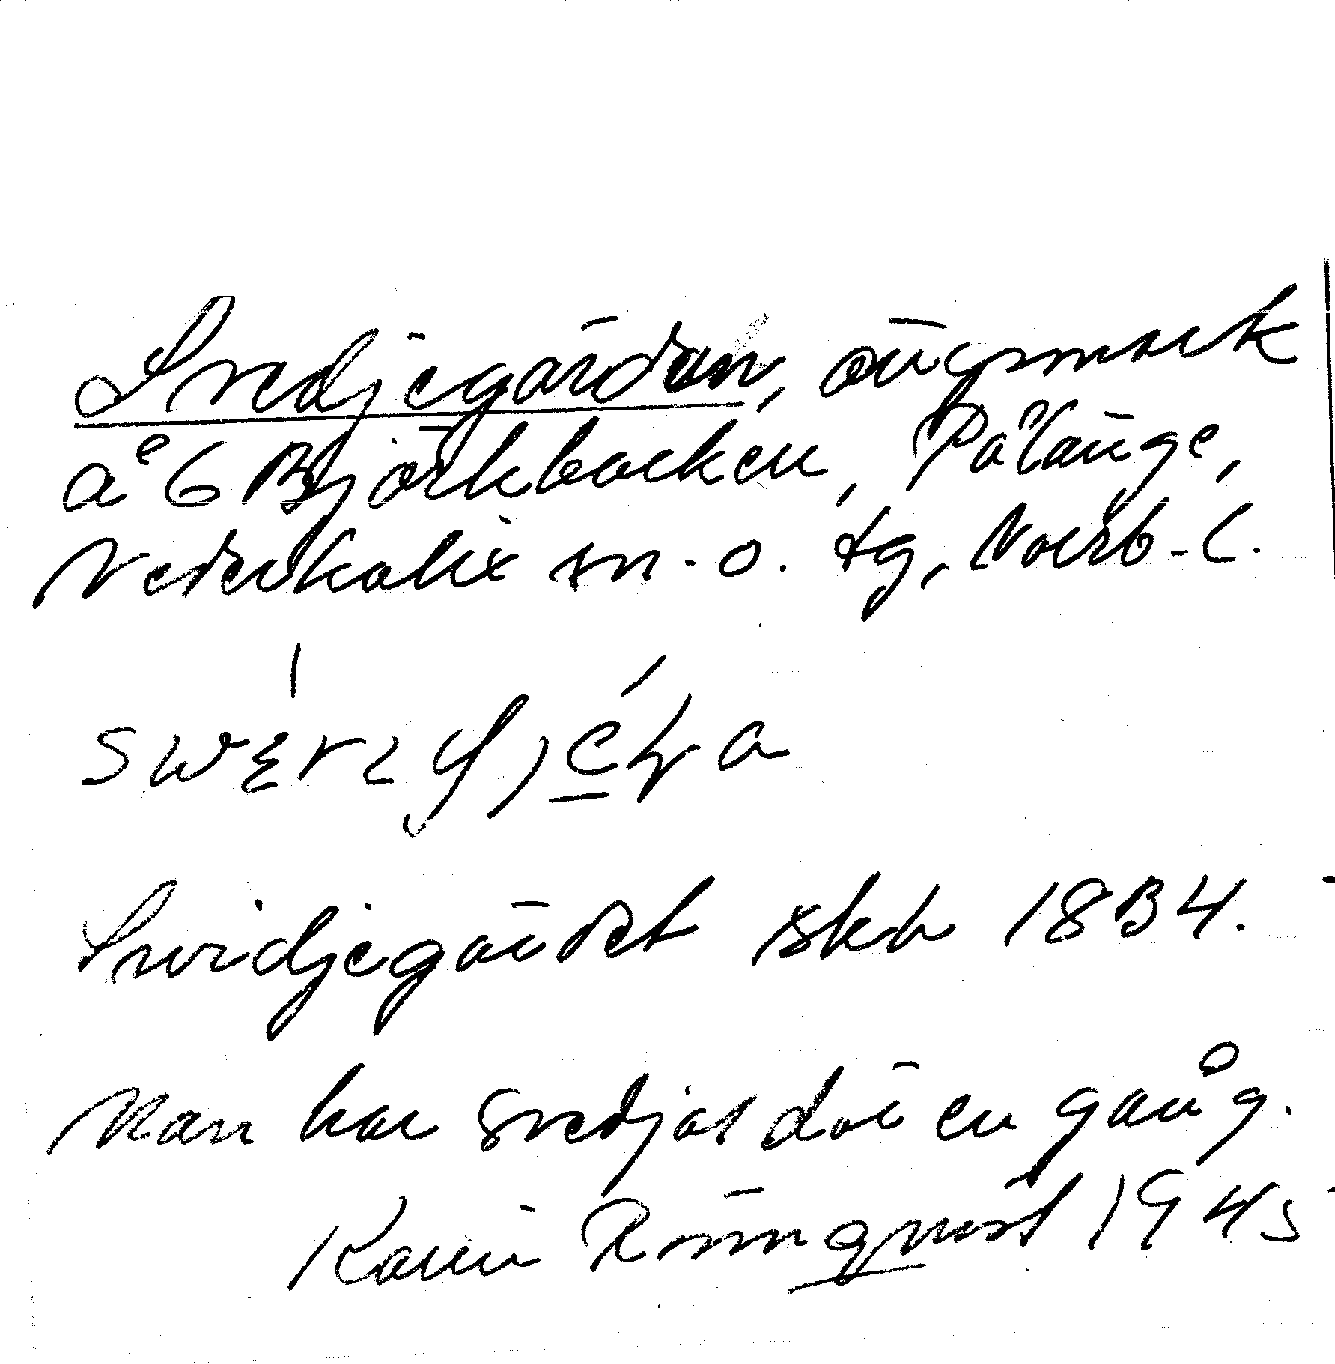 Svedjegärdan, ängsmark
å 6 Björkbacken, Pålänge,
Nederkalix sn. o. tg, Norrb. l.
Svidjegärdet skr 1834.
Man har svedjat där en gång.
Karin Rönnqvist 1945